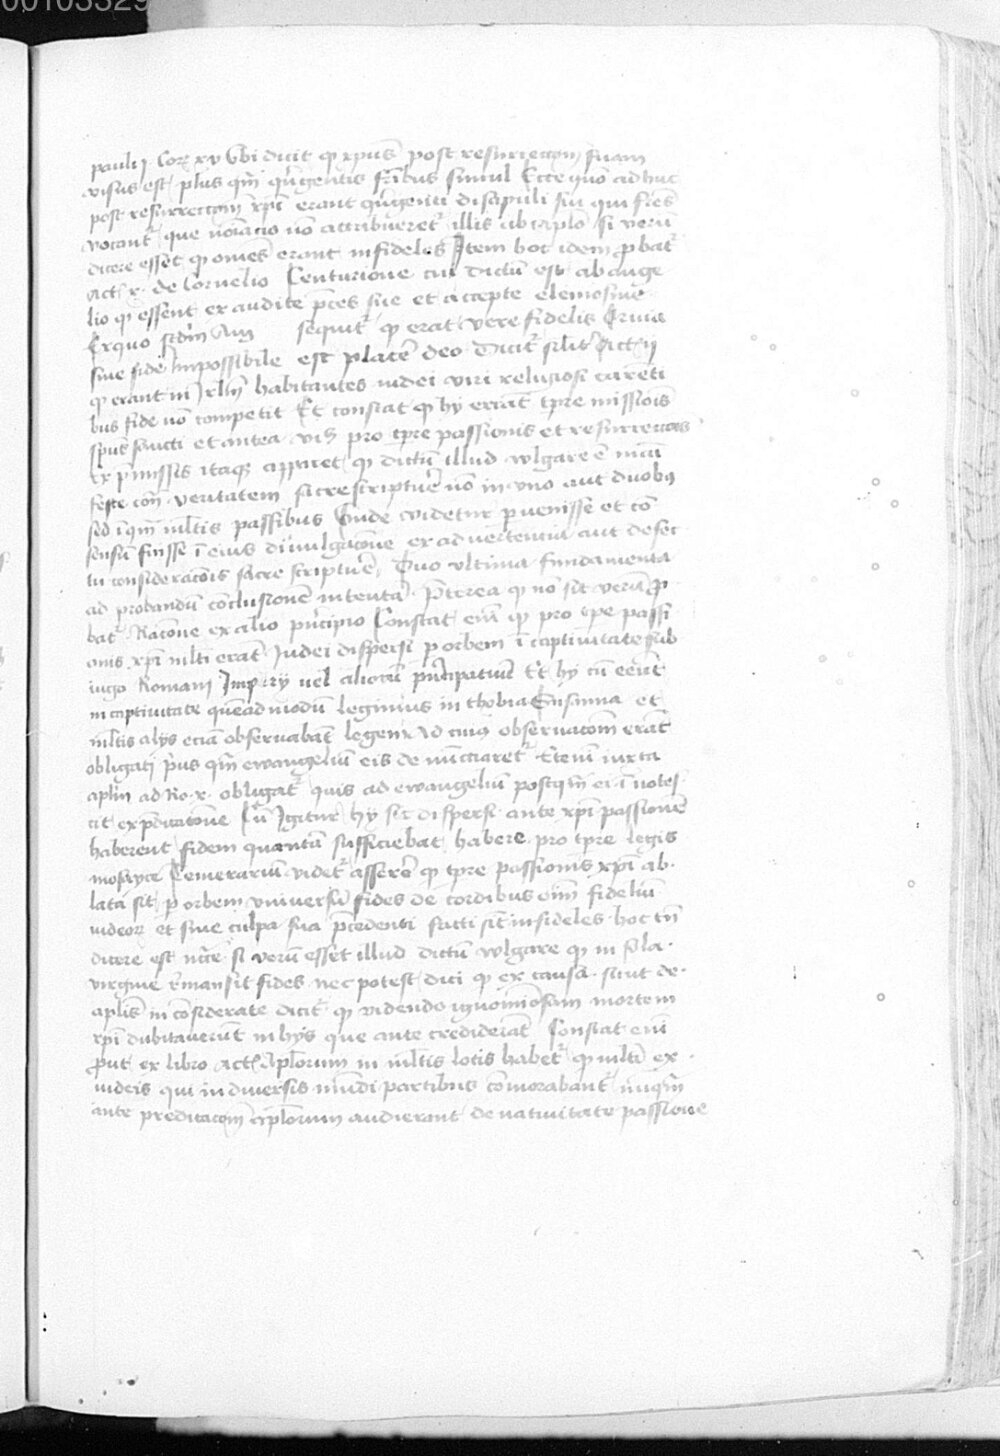 00103329
pauli j Cor xv Ubi dicit qͥ xpus post resurrectōm suam
visus est plus qm̄ qͥngentis frībus simul Ecce quō adhuc
post resurrectōm xpī erant qͥngenti discipuli sui qui frēs
vocant que noīacio nō attribueret illis ab aplō si verū
dicere esset qͥ omēs erant infideles Item hoc idem probat
act x de Cornelio Centurione cui dictū est ab ange
lio qͥ essent exaudite pces sue et accepte elemosine
Ex quo scdm Aug sequit qͥ erat vere fidelis Quia
sine fide impossibile est placere deo Dicit silr Act ij
qͥ erant in Irlm habitantes iudei viri religiosi carenti
bus fide nō competit Et constat qͥ hy erant tpre missiois
spūs sancti et antea pro tpre passionis et resurrectōis
ex pmissis itaqꝫ apparet qͥ dictū illud wlgare
veritatem sacre scripture nō in uno aut duobꝫ
sed multis passibus Unde videtur pvenisse et cō
sensū fuisse ī eius divulgacōne ex advertencia aut defec
tu consideracōis sacre scripture Quo ultima fundamenta
ad probandū cōclusionē intentā Pterea qͥ nō sit verū pro
bat Racōne ex alio pncipio Constat eī qͥ pro tpe passi
onis xpī mlti erāt Iudei dispersi p orbem ī captivitate sub
iugo Romani Imperij vel aliorū pncipatuū Et hy cū eent
in captivitate quēadmodū legimus in thobia Susanna et
mltis alys eciam observabāt legem Ad cuiꝫ observacōm erāt
obligati pus qm̄ ewangeliū eis denūcciaret Etenī iuxta
aplm ad Ro x obligat quis ad ewangeliū postqm̄ ei īnotes
cit ex pdicatōne Cū Igitur hy sic dispersi ante xpī passionē
haberent fidem quantū sufficiebat habere pro tpre legis
mosayce Temerariū videt asserere qͥ tpre passionis xpī ab
lata sit p orbem universū fides de cordibus oīm fideliū
iudeorꝫ et sine culpa sua pcedenti facti sīt infideles hoc tn̄
dicere est ncce si verū esset illud dictū wlgare qͥ in sola
virgine rēmansit fides nec potest dici qͥ ex causa sicut de
aplis incōsiderate dicit qͥ videndo ignominiosam mortem
xpī dubitaverūt in hys que ante crediderāt Constat eī
put ex libro act Aplorum in mltis locis habet qͥ mlti ex
iudeis qui in diversis mūdi partibus cōmorabant nūqm̄
ante predicacōm aplorum audierant de nativitate passione